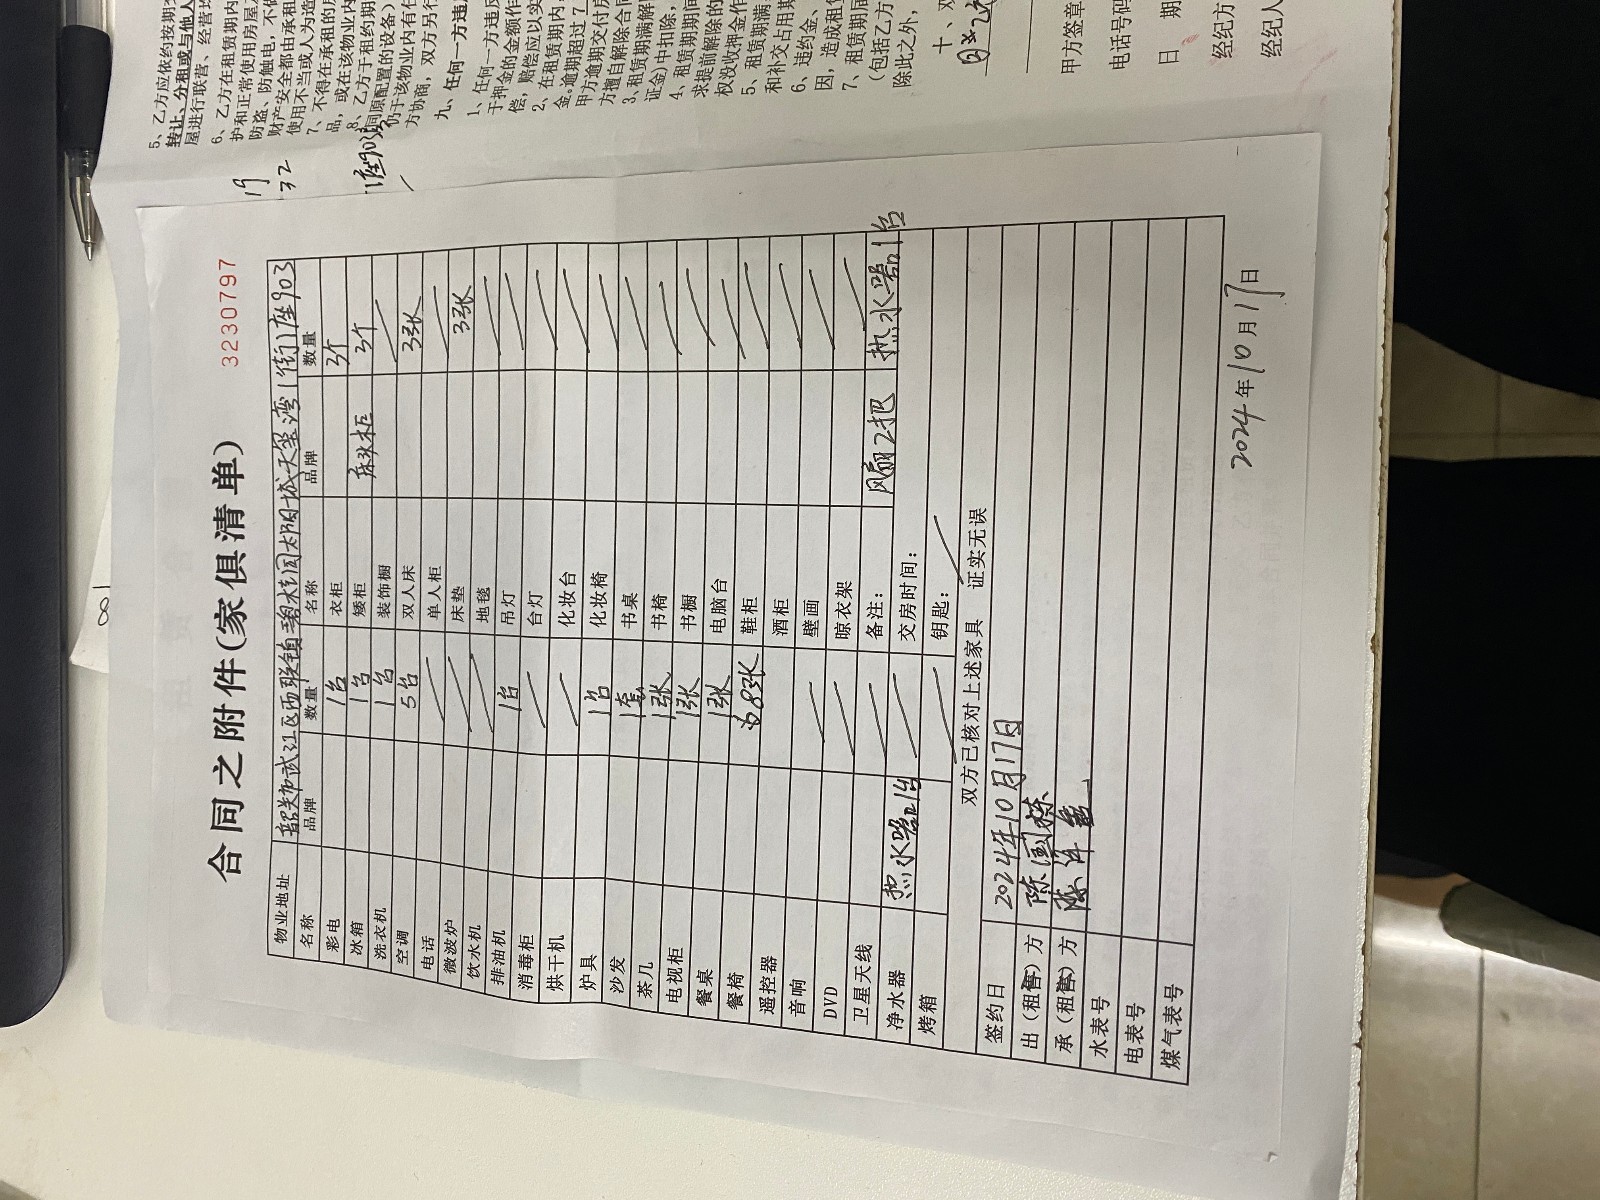 5、乙方应依约按期交
转让、分租或与他人
屋进行联营、经营
6、乙方在租赁期内
护和正常使用房屋
防盗、防触电，不做
财产安全都由承租
使用不当或人为造
7、不得在承租的房
品，或在该物业内
8、乙方于租约期
同原配置的设备）
仍于该物业内有任
方协商，双方另行
九、任何一方违
1、任何一方违反
于押金的金额作
偿，赔偿应以实
2、在租赁期内，
金。逾期超过7
甲方逾期交付房
方擅自解除合同
3、租赁期满解
证金）中扣除，
4、租赁期期间
求提前解除的
权没收押金作
5、租赁期满，
和补交占用期
6、违约金、
因，造成租赁
7、租赁期届
（包括乙方
除此之外，
十、双
甲方签章
电话号码
日 期
经纪方
经纪人
19
32
1座903
8
3230797
合同之附件(家俱清单)
物业地址 韶关市武江区西联镇碧桂园太阳城天玺湾1街1座903
名称 品牌 数量 名称 品牌 数量
彩电 1台 衣柜 3个
冰箱 1台 矮柜 床头柜 3个
洗衣机 1台 装饰橱
空调 5台 双人床 3张
电话 单人柜
微波炉 床垫 3张
饮水机 地毯
排油机 1台 吊灯
消毒柜 台灯
烘干机 化妆台
炉具 1台 化妆椅
沙发 1套 书桌
茶几 1张 书椅
电视柜 1张 书橱
餐桌 1张 电脑台
餐椅 8张 鞋柜
遥控器 酒柜
音响 壁画
DVD 晾衣架
卫星天线 备注： 风扇2把 热水器1台
净水器 交房时间：
烤箱 钥匙：
双方已核对上述家具 证实无误
签约日 2024年10月17日
出（租售）方 陈国栋
承（租售）方
水表号
电表号
煤气表号
2024年10月17日